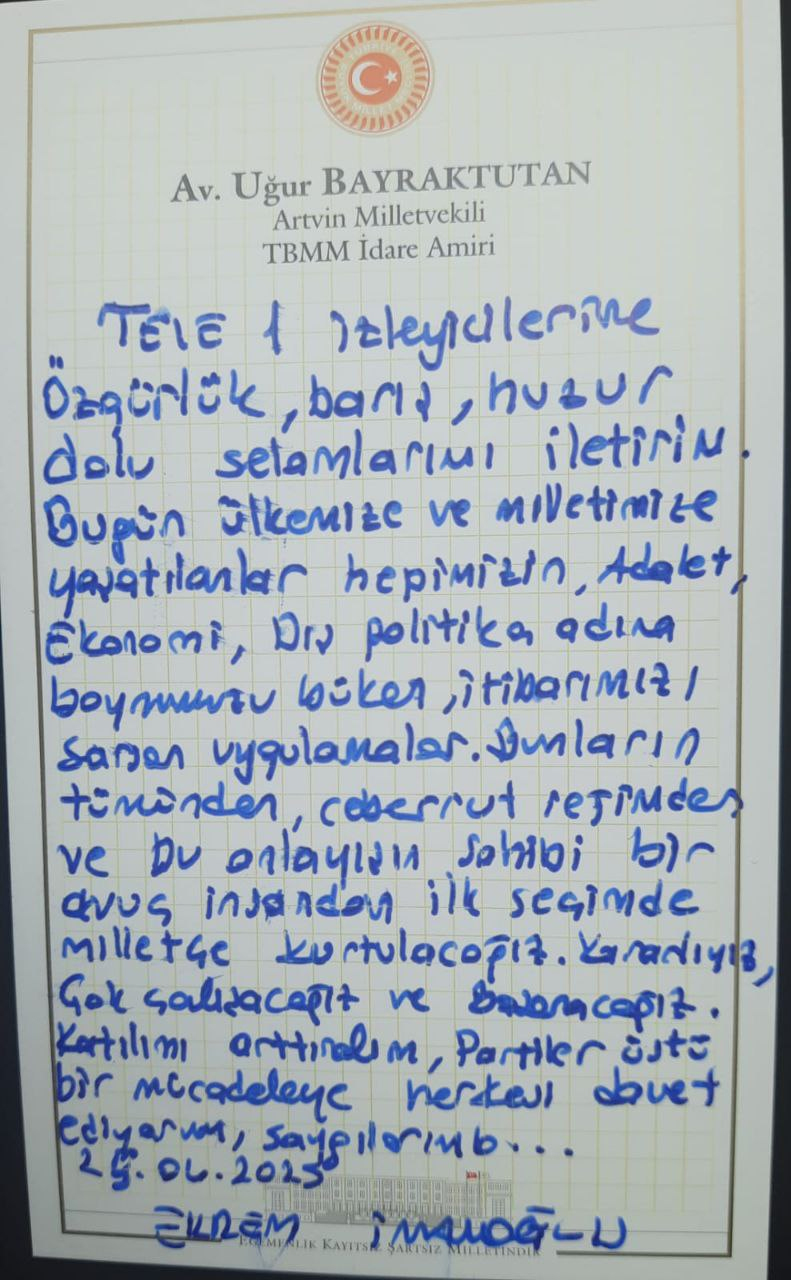 Av. Uğur BAYRAKTUTAN
Artvin Milletvekili
TBMM İdare Amiri
TELE 1 izleyicilerine
Özgürlük, barış, huzur
dolu selamlarımı iletirim.
Bugün ülkemize ve milletimize
yaşatılanlar hepimizin, Adalet,
Ekonomi, Dış politika adına
boynumuzu büken, itibarımızı
sarsan uygulamalar. Bunların
tümünden, ceberrut rejimden
ve bu anlayışın sahibi bir
avuç insandan ilk seçimde
milletçe kurtulacağız. Kararlıyız,
Çok çalışacağız ve Başaracağız.
Katılımı arttıralım, Partiler üstü
bir mücadeleye herkesi davet
ediyorum, saygılarımla...
.04.2025
EKREM İMAMOĞLU
EGEMENLİK KAYITSIZ ŞARTSIZ MİLLETİNDİR